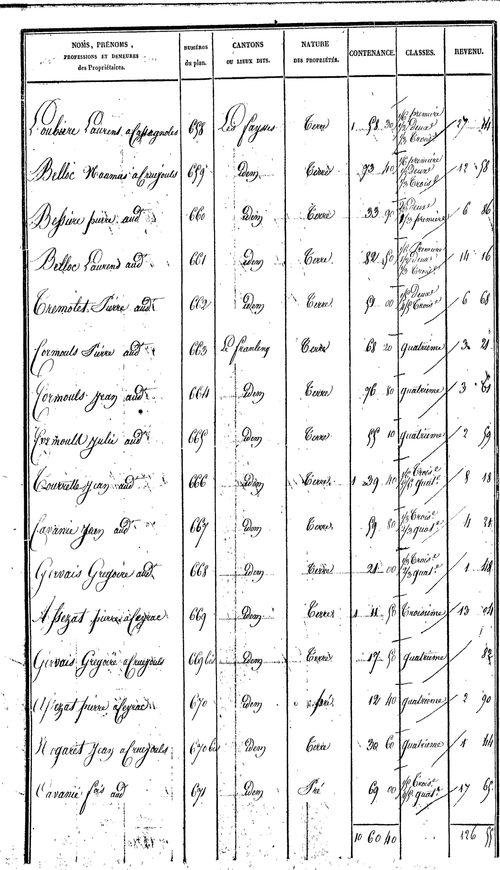 NOMS, PRÉNOMS, PROFESSIONS ET DEMEURES des Propriétaires. NUMÉROS du plan. CANTONS OU LIEUX DITS. NATURE DES PROPRIÉTÉS. CONTENANCE. CLASSES. REVENU.
Loubiere Laurens a Cassagnoles 658 Les faysses Terre 1 58 30 1/3 premiere 1/3 Deux.e 1/3 Trois.e 27 44
Belloc a Cruejouls 659 idem Terre 93 40 1/3 premiere 1/3 Deux.e 1/3 Trois.e 12 58
Bessiere pierre aud.t 660 idem Terre 33 90 Deux.e premiere 6 86
Belloc Laurens aud.t 661 idem Terre 82 50 1/3 premiere 1/3 Deux.e 1/3 Trois.e 14 16
Tremoles Pierre aud.t 662 idem Terre 51 00 Deux.e Trois.e 6 68
Cormouls Pierre aud.t 663 Terre 68 20 quatrieme 3 28
Cormouls Jean aud.t 664 idem Terre 76 80 quatrieme 3
Julie aud.t 665 idem Terre 55 10 quatrieme 2 59
Jean aud.t 666 idem Terre 1 39 40 1/3 Trois.e 2/3 quat.e 8 18
Cavanie Jean aud.t 667 idem Terre 59 80 1/3 Trois.e 2/3 quat.e 4
Gervais Gregoire aud.t 668 idem Terre 21 00 1/3 Trois.e 2/3 quat.e 1 48
Assezat pierre a Ceyrac 669 idem Terre 1 11 50 Troisieme 13 04
Gervais Gregoire a Cruejouls 669 bis idem Terre 17 50 quatrieme 82
Assezat pierre a Ceyrac 670 idem pré 12 40 quatrieme 2 90
Nogaret Jean a Cruejouls 670 bis idem Terre 30 60 quatrieme 1 44
Cavanie fois aud.t 671 idem Pré 69 00 1/2 Trois.e 1/2 quat.e 17 65
10 60 40 126 55